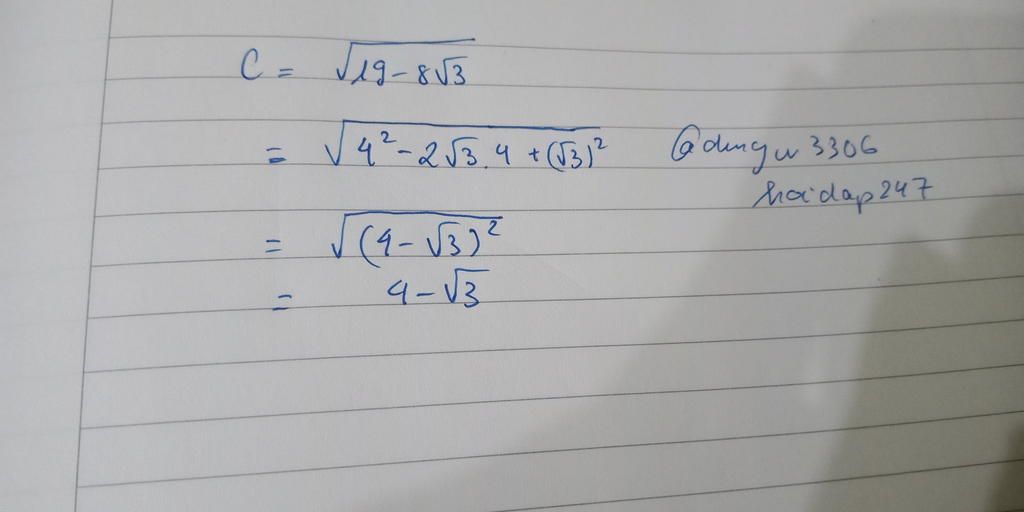 C = √19 - 8√3
= √4² - 2√3.4 + (√3)² @dungw3306
hoidap247
= √(4 - √3)²
= 4 - √3